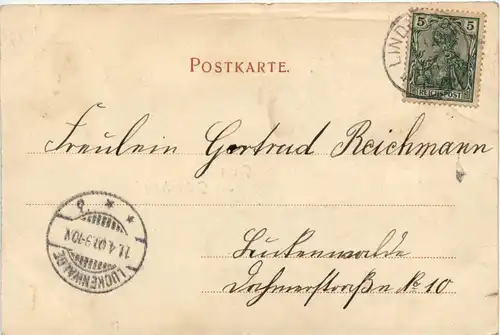 POSTKARTE.
5
LIND
REICHSPOST
Fräulein Gertrud Reichmann
11.4.01.9-10V.
LUCKENWALDE
Luckenwalde
Dahmerstraße No 10